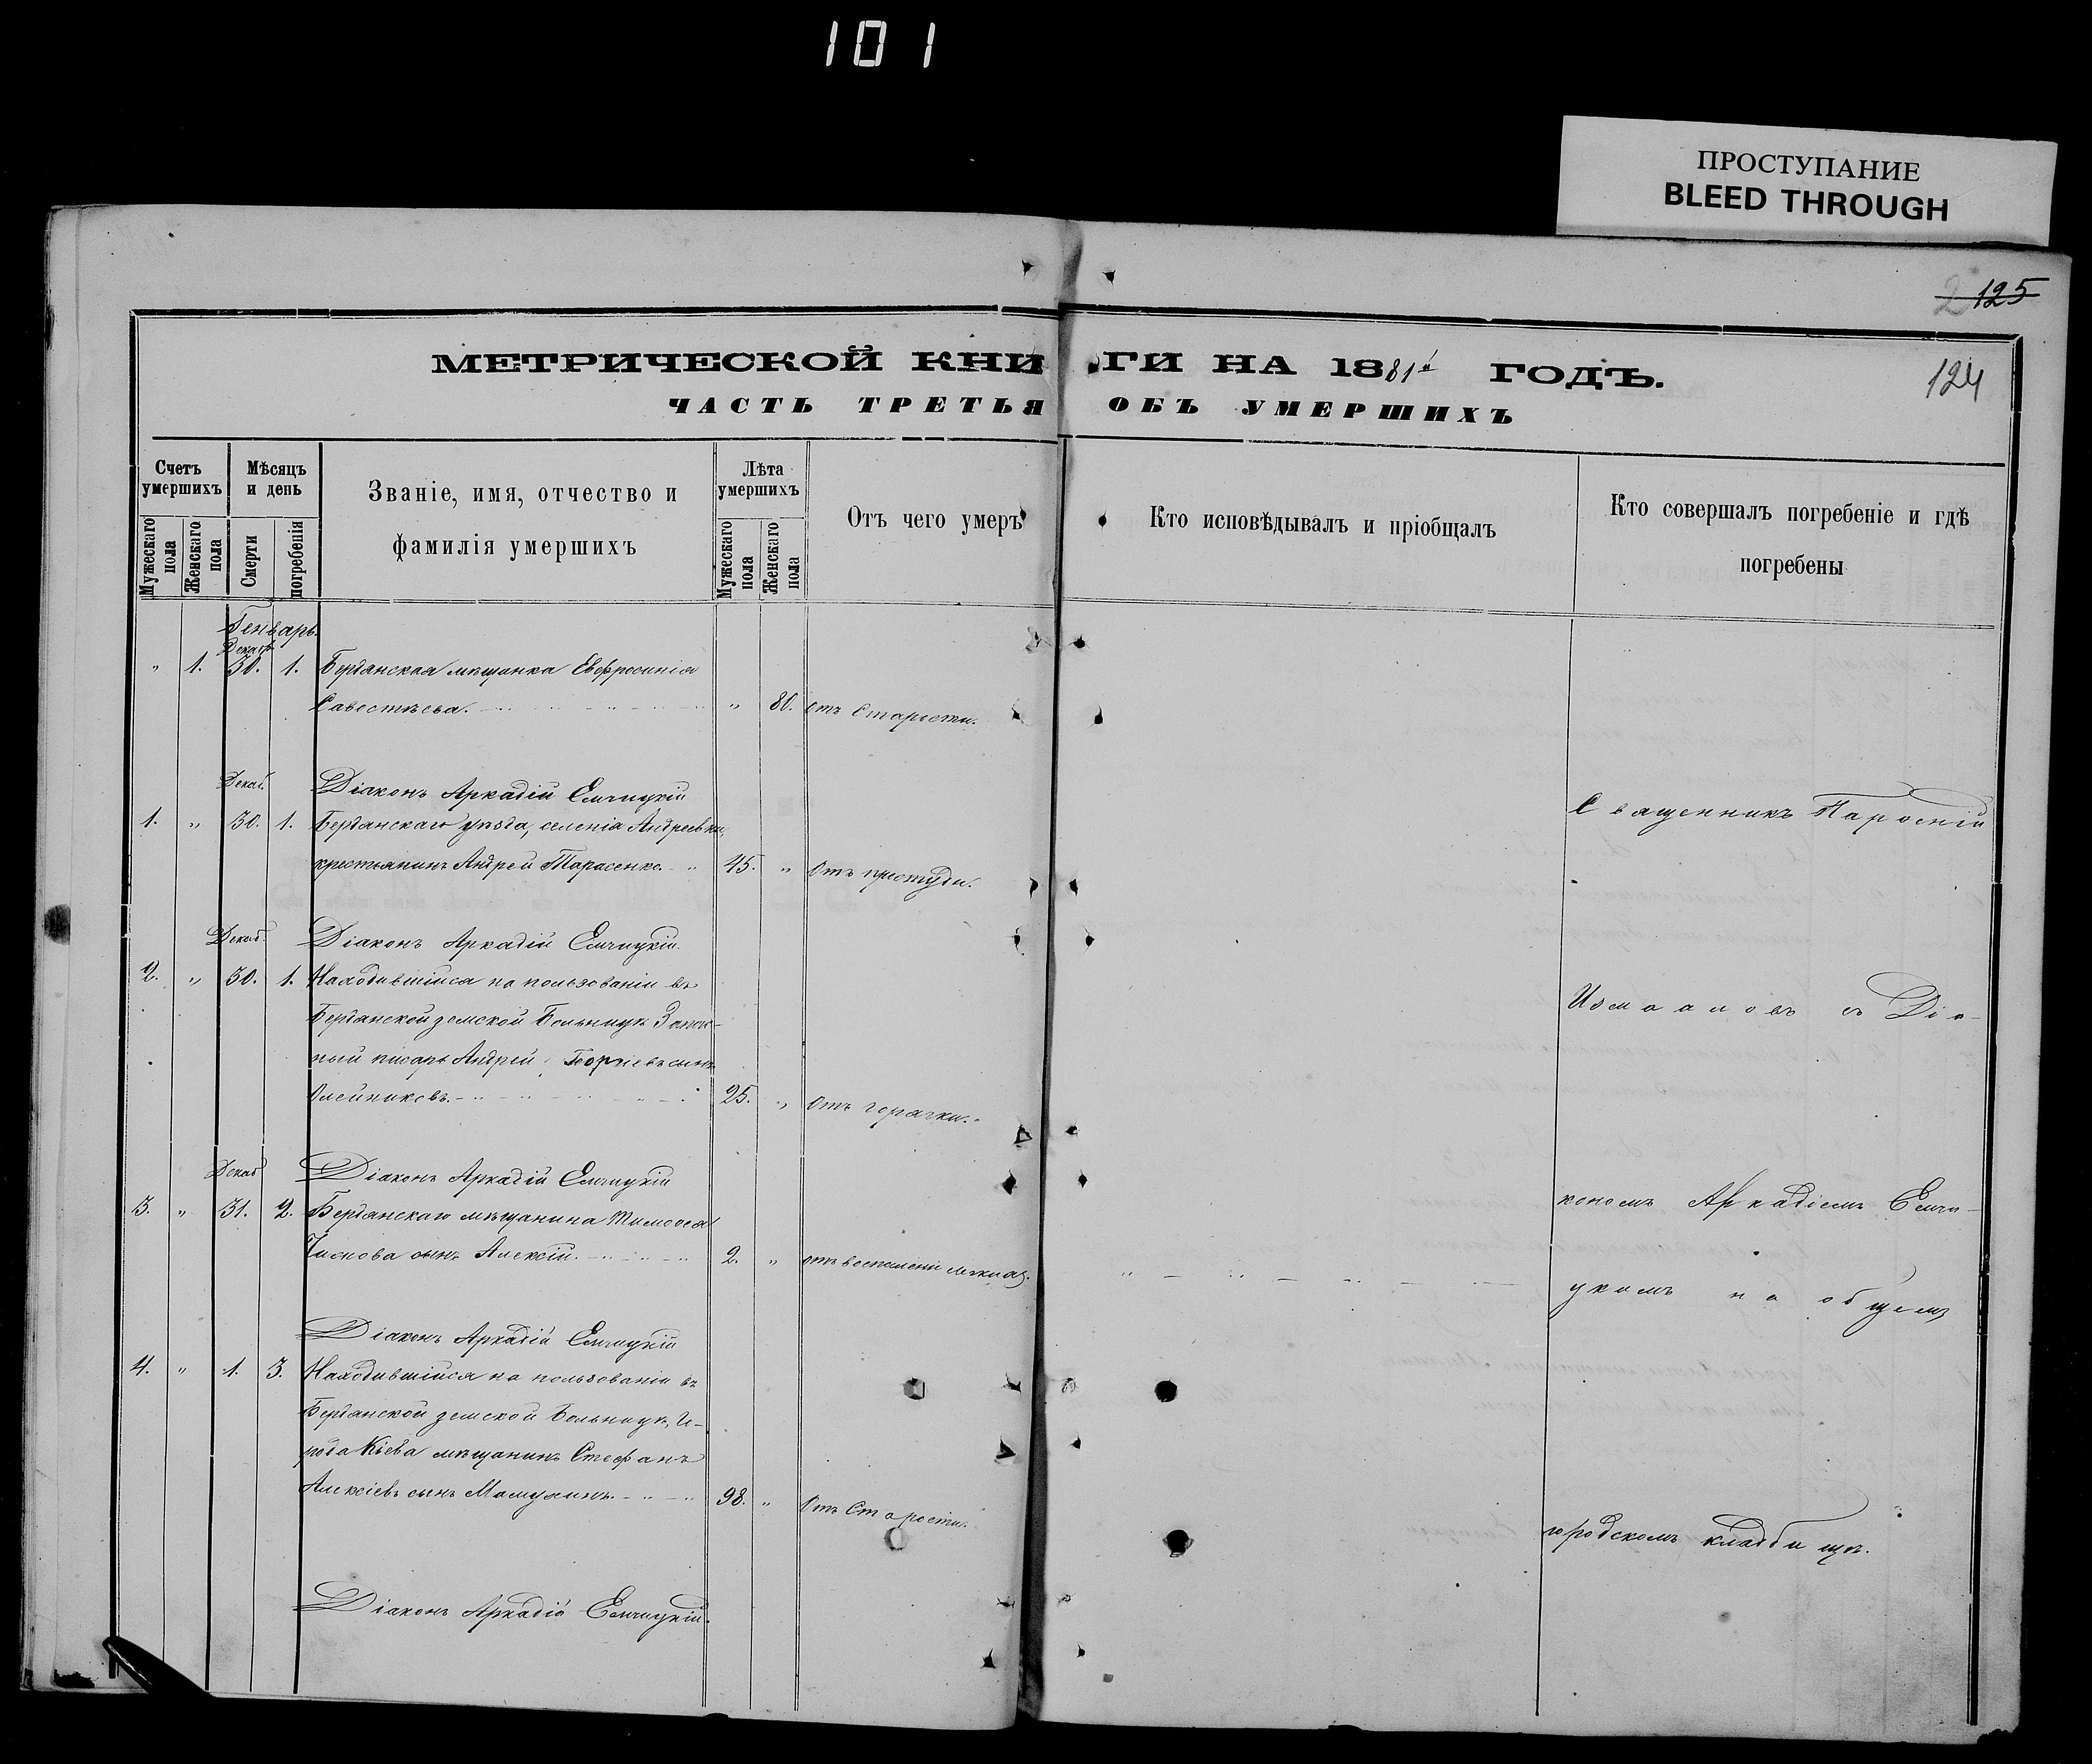 101
ПРОСТУПАНИЕ
BLEED THROUGH
125
124
МЕТРИЧЕСКОЙ КНИГИ НА 1881й ГОДЪ.
ЧАСТЬ ТРЕТЬЯ ОБЪ УМЕРШИХЪ
Счетъ умершихъ
Мужескаго пола
Женскаго пола
Мѣсяцъ и день
Смерти
погребенія
Званіе, имя, отчество и
фамилія умершихъ
Лѣта умершихъ
Мужескаго пола
Женскаго пола
Отъ чего умеръ
Кто исповѣдывалъ и пріобщалъ
Кто совершалъ погребеніе и гдѣ
погребены
Генварь.
Декабр.
" 1. 30. 1. Бердянская мѣщанка Евфросинія
Савостѣева. " 80. отъ Старости.
Декаб. Діаконъ Аркадій
1. " 30. 1. Бердянскаго уѣзда, селенія Андреевки,
крестьянинъ Андрей Тарасенко. 45. " Отъ простуды.
Декаб. Діаконъ Аркадій
2. " 30. 1. Находившійся на пользованіи въ
Бердянской земской Больницѣ Запас-
ный писарь Андрей Георгіевъ сынъ
Олейниковъ. 25. " Отъ горячки.
Декаб Діаконъ Аркадій
3. " 31. 2. Бердянскаго мѣщанина Тимофея
сынъ Алексій. 2. " отъ воспаленія легкихъ.
Діаконъ Аркадій
4. " 1. 3. Находившійся на пользованіи въ
Бердянской земской Больницѣ, Го-
рода Кіева мѣщанинъ Стефанъ
Алексіевъ сынъ 98. " Отъ Старости.
Діаконъ Аркадій
Священникъ
Измаиловъ съ Діа-
кономъ Аркадіемъ
цкимъ на общемъ
городскомъ кладбищѣ.